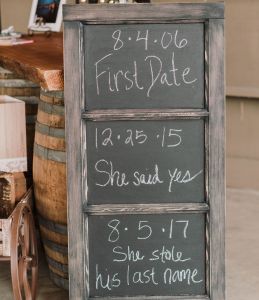 8.4.06
First Date
12.25.15
She said yes
8.5.17
She stole
his last name